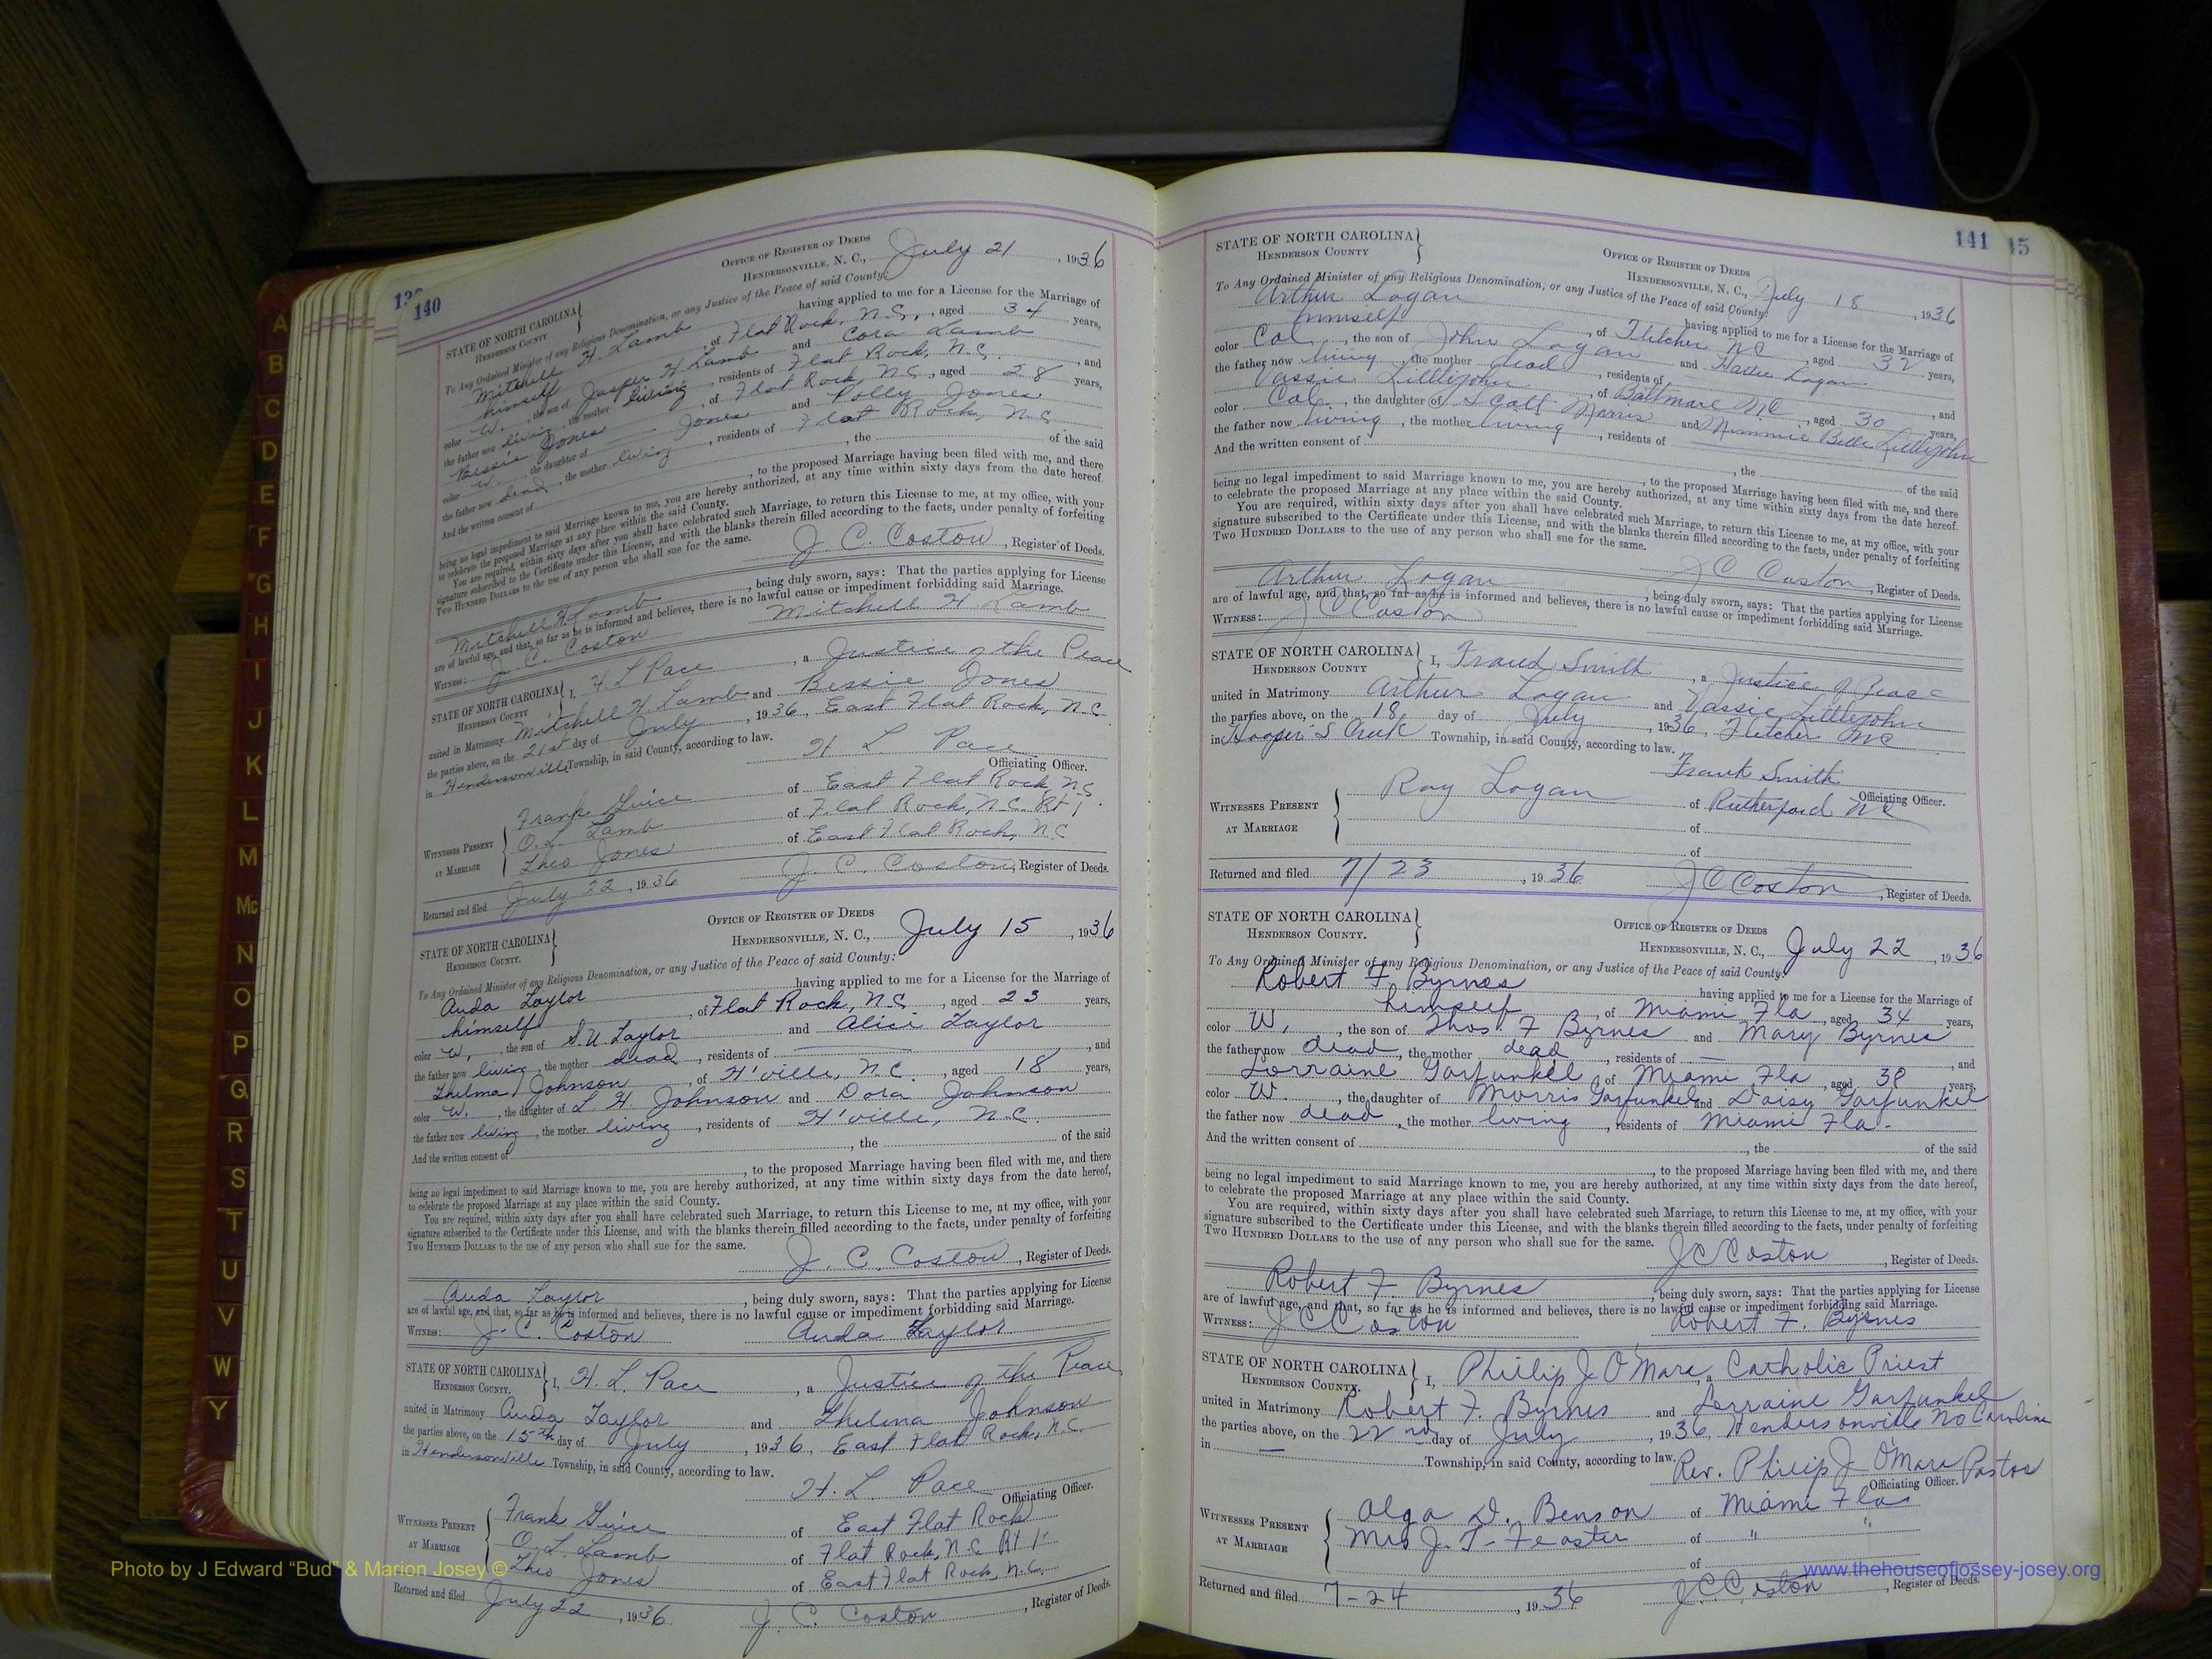 A
B
C
D
E
F
G
H
I
J
K
L
M
Mc
N
O
P
Q
R
S
T
U
V
W
Y
140
Office of Register of Deeds
Hendersonville, N. C., July 21, 1936
STATE OF NORTH CAROLINA
Henderson County
To Any Ordained Minister of any Religious Denomination, or any Justice of the Peace of said County:
Mitchell H. Lamb having applied to me for a License for the Marriage of
himself, of Flat Rock, N.C., aged 34 years,
color W., the son of Jasper H Lamb and Cora Lamb
the father now living, the mother living, residents of Flat Rock, N.C., and
Bessie Jones, of Flat Rock, N.C., aged 28 years,
color W., the daughter of Jones and Polly Jones
the father now dead, the mother living, residents of Flat Rock, N.C
And the written consent of, the of the said
, to the proposed Marriage having been filed with me, and there
being no legal impediment to said Marriage known to me, you are hereby authorized, at any time within sixty days from the date hereof,
to celebrate the proposed Marriage at any place within the said County.
You are required, within sixty days after you shall have celebrated such Marriage, to return this License to me, at my office, with your
signature subscribed to the Certificate under this License, and with the blanks therein filled according to the facts, under penalty of forfeiting
Two Hundred Dollars to the use of any person who shall sue for the same.
J. C. Coston, Register of Deeds.
Mitchell H. Lamb, being duly sworn, says: That the parties applying for License
are of lawful age, and that, so far as he is informed and believes, there is no lawful cause or impediment forbidding said Marriage.
Witness: J. C. Coston Mitchell H. Lamb
STATE OF NORTH CAROLINA
Henderson County
I, H. L Pace, a Justice of the Peace
united in Matrimony Mitchell H. Lamb and Bessie Jones
the parties above, on the 21st day of July, 1936, East Flat Rock, N.C.
in Hendersonville Township, in said County, according to law.
H L. Pace
Officiating Officer.
Witnesses Present
at Marriage
Frank Guice of East Flat Rock, N.C.
O. L. Lamb of Flat Rock, N.C. Rt 1
Theo Jones of East Flat Rock, N.C
Returned and filed July 22, 1936 J. C. Coston, Register of Deeds.
Office of Register of Deeds
Hendersonville, N. C., July 15, 1936
STATE OF NORTH CAROLINA
Henderson County.
To Any Ordained Minister of any Religious Denomination, or any Justice of the Peace of said County:
Auda Taylor having applied to me for a License for the Marriage of
himself, of Flat Rock, N.C., aged 23 years,
color W., the son of S.U. Taylor and Alice Taylor
the father now living, the mother dead, residents of, and
Thelma Johnson, of H'ville, N.C., aged 18 years,
color W., the daughter of L. H. Johnson and Dora Johnson
the father now living, the mother living, residents of H'ville, N.C.
And the written consent of, the of the said
, to the proposed Marriage having been filed with me, and there
being no legal impediment to said Marriage known to me, you are hereby authorized, at any time within sixty days from the date hereof,
to celebrate the proposed Marriage at any place within the said County.
You are required, within sixty days after you shall have celebrated such Marriage, to return this License to me, at my office, with your
signature subscribed to the Certificate under this License, and with the blanks therein filled according to the facts, under penalty of forfeiting
Two Hundred Dollars to the use of any person who shall sue for the same.
J. C. Coston, Register of Deeds.
Auda Taylor, being duly sworn, says: That the parties applying for License
are of lawful age, and that, so far as he is informed and believes, there is no lawful cause or impediment forbidding said Marriage.
Witness: J. C. Coston Auda Taylor
STATE OF NORTH CAROLINA
Henderson County.
I, H. L. Pace, a Justice of the Peace
united in Matrimony Auda Taylor and Thelma Johnson
the parties above, on the 15th day of July, 1936, East Flat Rock, N.C.
in Hendersonville Township, in said County, according to law.
H. L. Pace
Officiating Officer.
Witnesses Present
at Marriage
Frank Guice of East Flat Rock
O. L. Lamb of Flat Rock, N.C Rt 1
Theo Jones of East Flat Rock, N.C.
Returned and filed July 22, 1936 J. C. Coston, Register of Deeds.
141
STATE OF NORTH CAROLINA
Henderson County
Office of Register of Deeds
Hendersonville, N. C., July 18, 1936
To Any Ordained Minister of any Religious Denomination, or any Justice of the Peace of said County:
Arthur Logan having applied to me for a License for the Marriage of
himself, of Fletcher NC, aged 32 years,
color Col, the son of John Logan and Hattie Logan
the father now living, the mother dead, residents of, and
Vassie Littlejohn, of Baltmare NC, aged 30 years,
color Col., the daughter of Scott Morris and Minnie Belle Littlejohn
the father now living, the mother living, residents of
And the written consent of, the of the said
, to the proposed Marriage having been filed with me, and there
being no legal impediment to said Marriage known to me, you are hereby authorized, at any time within sixty days from the date hereof.
to celebrate the proposed Marriage at any place within the said County.
You are required, within sixty days after you shall have celebrated such Marriage, to return this License to me, at my office, with your
signature subscribed to the Certificate under this License, and with the blanks therein filled according to the facts, under penalty of forfeiting
Two Hundred Dollars to the use of any person who shall sue for the same.
J C Coston, Register of Deeds.
Arthur Logan, being duly sworn, says: That the parties applying for License
are of lawful age, and that, so far as he is informed and believes, there is no lawful cause or impediment forbidding said Marriage.
Witness: J C Coston
STATE OF NORTH CAROLINA
Henderson County
I, Frank Smith, a Justice of Peace
united in Matrimony Arthur Logan and Vassie Littlejohn
the parties above, on the 18 day of July, 1936, Fletcher NC
in Hooper's Creek Township, in said County, according to law.
Frank Smith
Officiating Officer.
Witnesses Present
at Marriage
Ray Logan of Rutherford NC
of
of
Returned and filed 7/23, 1936 J C Coston, Register of Deeds.
STATE OF NORTH CAROLINA
Henderson County.
Office of Register of Deeds
Hendersonville, N. C., July 22, 1936
To Any Ordained Minister of any Religious Denomination, or any Justice of the Peace of said County:
Robert F. Byrnes having applied to me for a License for the Marriage of
himself, of Miami Fla, aged 34 years,
color W., the son of Thos F Byrnes and Mary Byrnes
the father now dead, the mother dead, residents of, and
Lorraine Garfunkel, of Miami Fla, aged 38 years,
color W., the daughter of Morris Garfunkel and Daisy Garfunkel
the father now dead, the mother living, residents of Miami Fla.
And the written consent of, the of the said
, to the proposed Marriage having been filed with me, and there
being no legal impediment to said Marriage known to me, you are hereby authorized, at any time within sixty days from the date hereof,
to celebrate the proposed Marriage at any place within the said County.
You are required, within sixty days after you shall have celebrated such Marriage, to return this License to me, at my office, with your
signature subscribed to the Certificate under this License, and with the blanks therein filled according to the facts, under penalty of forfeiting
Two Hundred Dollars to the use of any person who shall sue for the same.
J C Coston, Register of Deeds.
Robert F. Byrnes, being duly sworn, says: That the parties applying for License
are of lawful age, and that, so far as he is informed and believes, there is no lawful cause or impediment forbidding said Marriage.
Witness: J C Coston Robert F. Byrnes
STATE OF NORTH CAROLINA
Henderson County.
I, Phillip J O'Mara, a Catholic Priest
united in Matrimony Robert F. Byrnes and Lorraine Garfunkel
the parties above, on the 22nd day of July, 1936, Hendersonville No Carolina
in — Township, in said County, according to law.
Rev. Philip J O'Mara Pastor
Officiating Officer.
Witnesses Present
at Marriage
Olga D. Benson of Miami Fla
Mrs J. T. Feaster of " "
of
Returned and filed 7-24, 1936 J C Coston, Register of Deeds.
Photo by J Edward “Bud” & Marion Josey ©
www.thehouseofjossey-josey.org